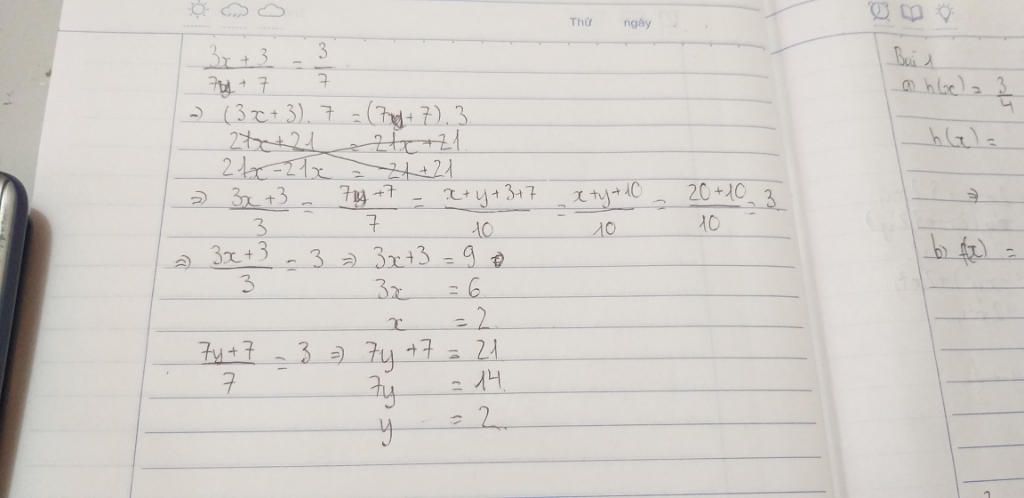 Thứ ngày
3x + 3 / 7y + 7 = 3 / 7
⇒ (3x+3).7 = (7y+7).3
21x+21 = 21x+21
21x-21x = 21+21
⇒ 3x+3 / 3 = 7y+7 / 7 = x+y+3+7 / 10 = x+y+10 / 10 = 20+10 / 10 = 3
⇒ 3x+3 / 3 = 3 ⇒ 3x+3 = 9
3x = 6
x = 2
7y+7 / 7 = 3 ⇒ 7y+7 = 21
7y = 14
y = 2
Bài 1
a) h(x) = 3 / 4
h(x) =
⇒
b) f(x) =